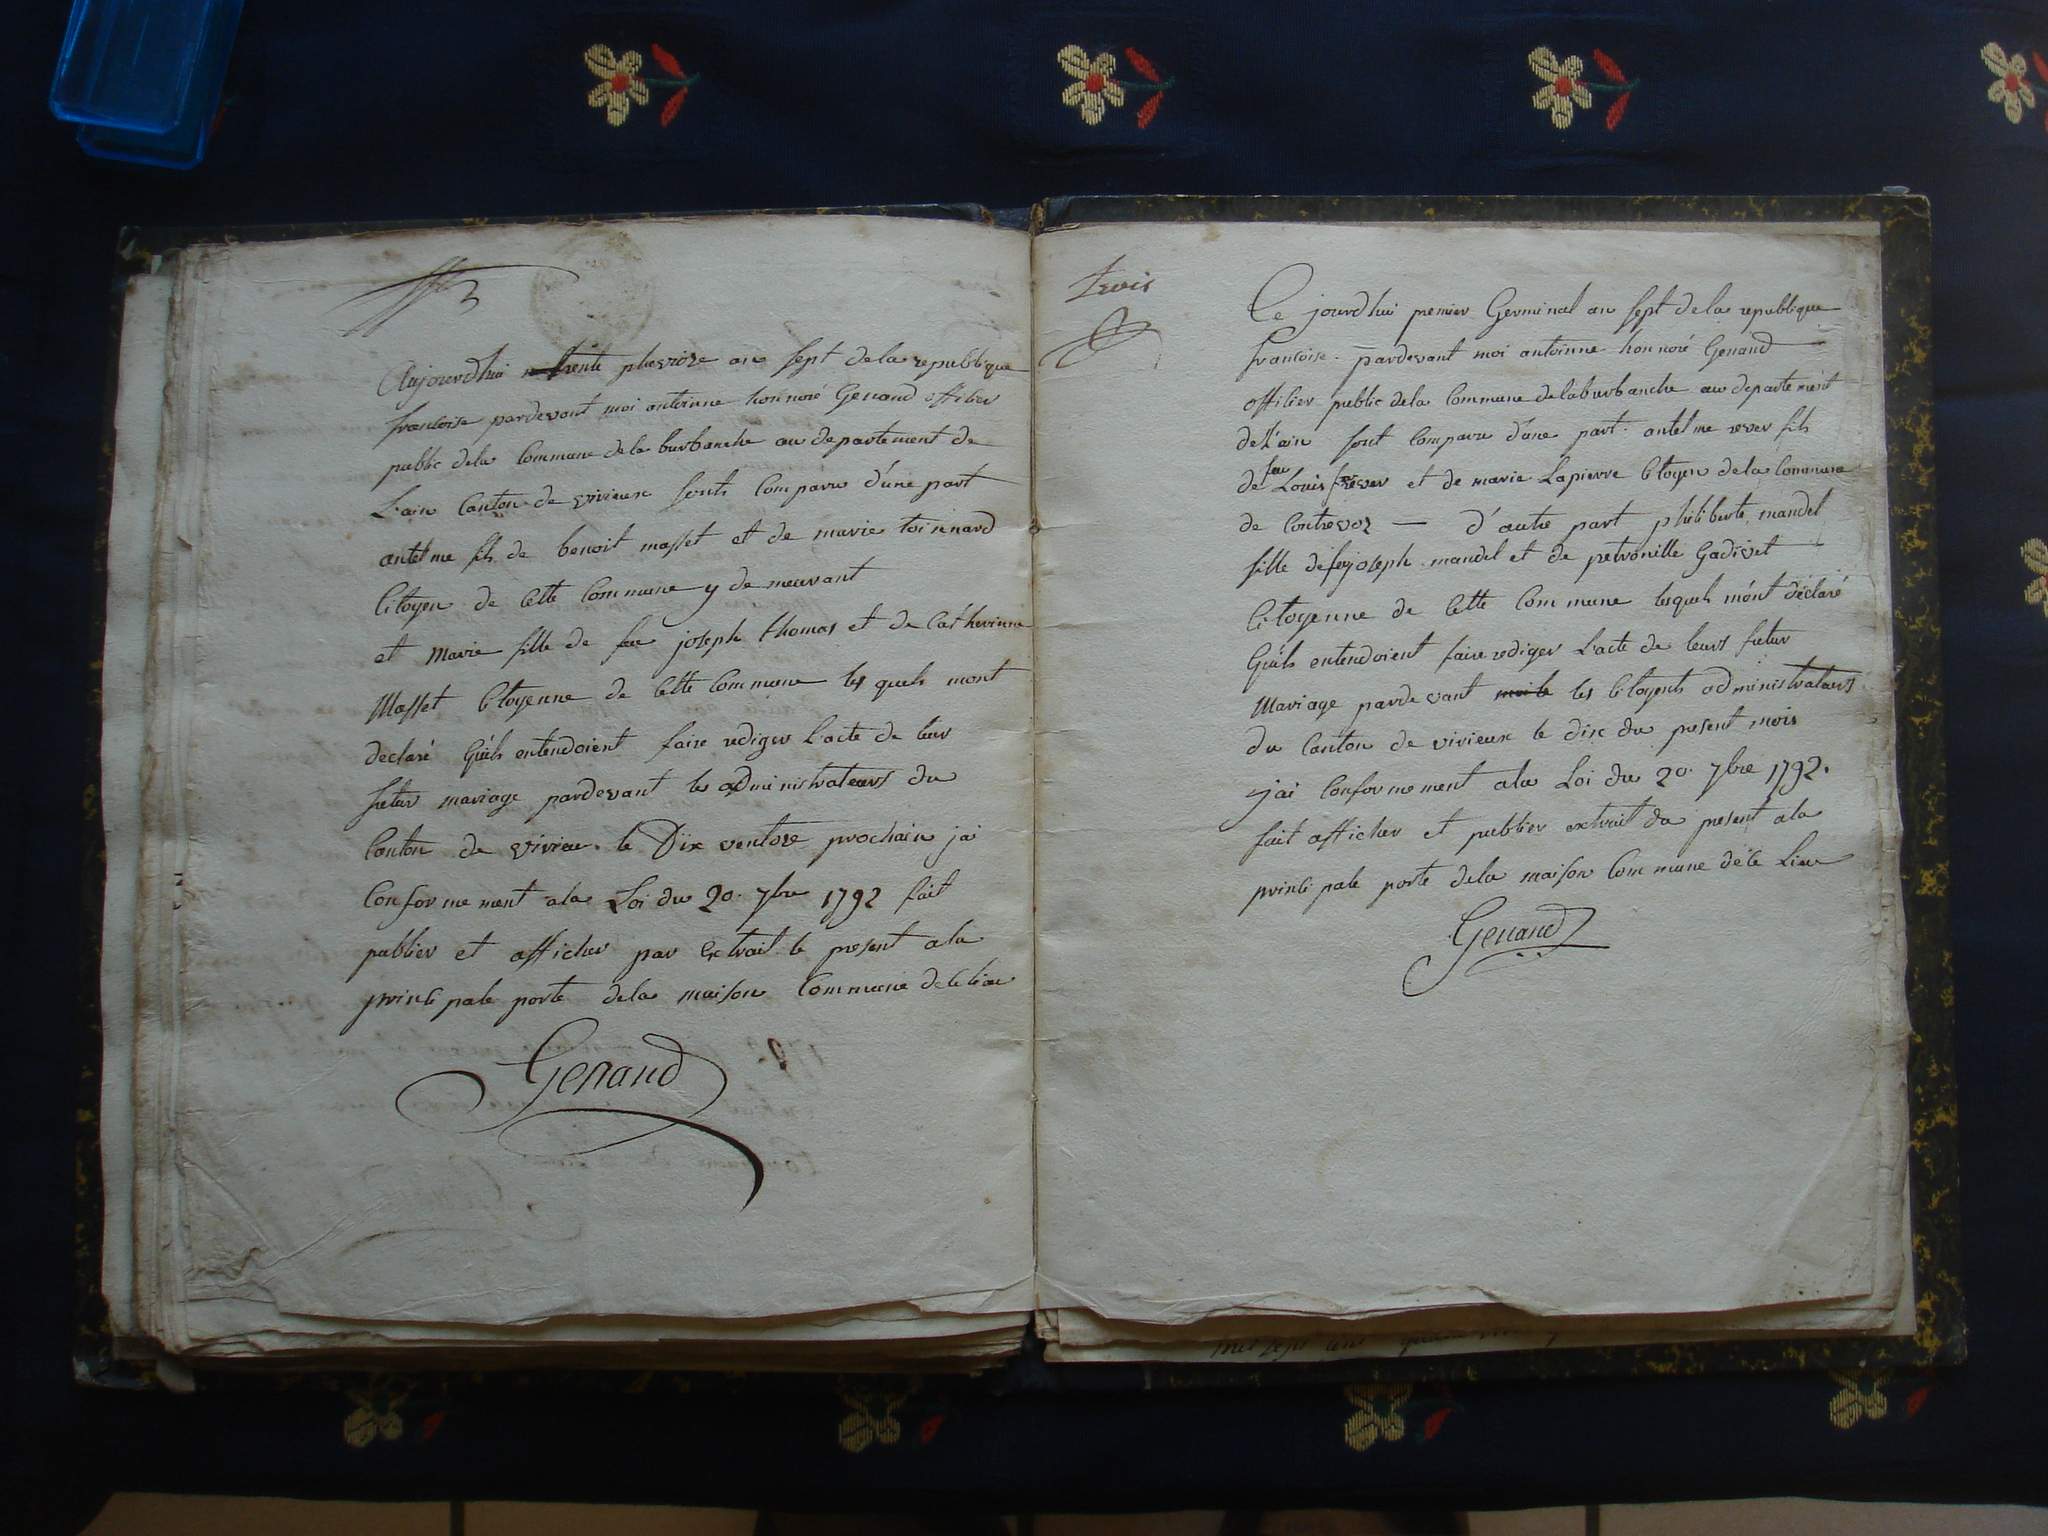 Aujourdhui trente pluviose an sept de la republique
francoise pardevant moi antoinne honnoré Genand offilier
public dela Commune dela burbanche au departement de
L'ain Canton de virieux sonts Comparu d'une part
antelme fils de benoit masset et de marie toinnard
Citoyen de Cette Commune y de meurant
et Marie fille de feu joseph thomas et de Catherinne
Masset Citoyenne de Cette Commune les quels mont
declaré Quils entendoient faire rediger L'acte de leur
futur mariage pardevant les administrateurs du
Canton de virieu le Dix ventose prochain j'ai
Conformement ala Loi du 20. 7bre 1792 fait
publier et afficher par Extrait le present ala
principale porte dela maison Commune de Ce lieu
Genand
trois
Ce jourdhui premier Germinal an sept dela republique
francoise pardevant moi antoinne honnoré Genand
offilier public dela Commune delaburbanche au departement
de L'ain sont Comparu d'une part antelme rever fils
de feu Louis rever et de marie Lapierre Citoyen dela Commune
de Contrevoz — d'autre part philiberte mandel
fille de feu joseph mandel et de petronille Gadivet
Citoyenne de Cette Commune lesquels m'ont déclaré
Quils entendoient faire rediger L'acte de leurs futur
Mariage pardevant les Citoyents administrateurs
du Canton de virieux le dix du present mois
j'ai Conformement ala Loi du 20. 7bre 1792.
fait afficher et publier extrait du present ala
principale porte dela maison Commune de Ce Lieu
Genand